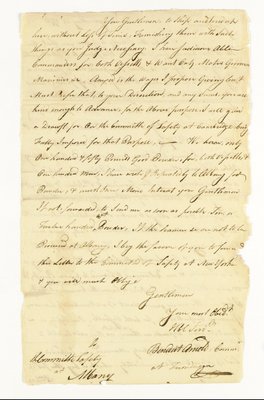 You Gentlemen to Ship and
here without loss of time Furnishing them with Such
things as you Judge Necessary. I have
Commanders for both Vessells & Want Only Mates Gunners
Mariners & Wages I propose Giving
Must Refer that to your Discretion and any Sums you are
kind enough to Advance for the Above purpose I will give
a Draught for On the Committee of Safety at Cambridge being
Fully for that Purpose. We have only
One hundred & fifty Pounds Good Powder for both Vessells &
One hundred Men, I have wrote to Albany for
Powder, & must Intreat you Gentlemen
If not forwarded to Send me as soon as possible Ten or
Twelve hundred Powder. If the Seamen are not to be
Procured at Albany, I beg the favor of you to forward
this Letter to the Committee of Safety at New York
& you will much Oblige
Gentlemen
Your most Obed.t
Hble Serv.t
Benedict Arnold Comm.r
at
To
Committee Safety
Albany